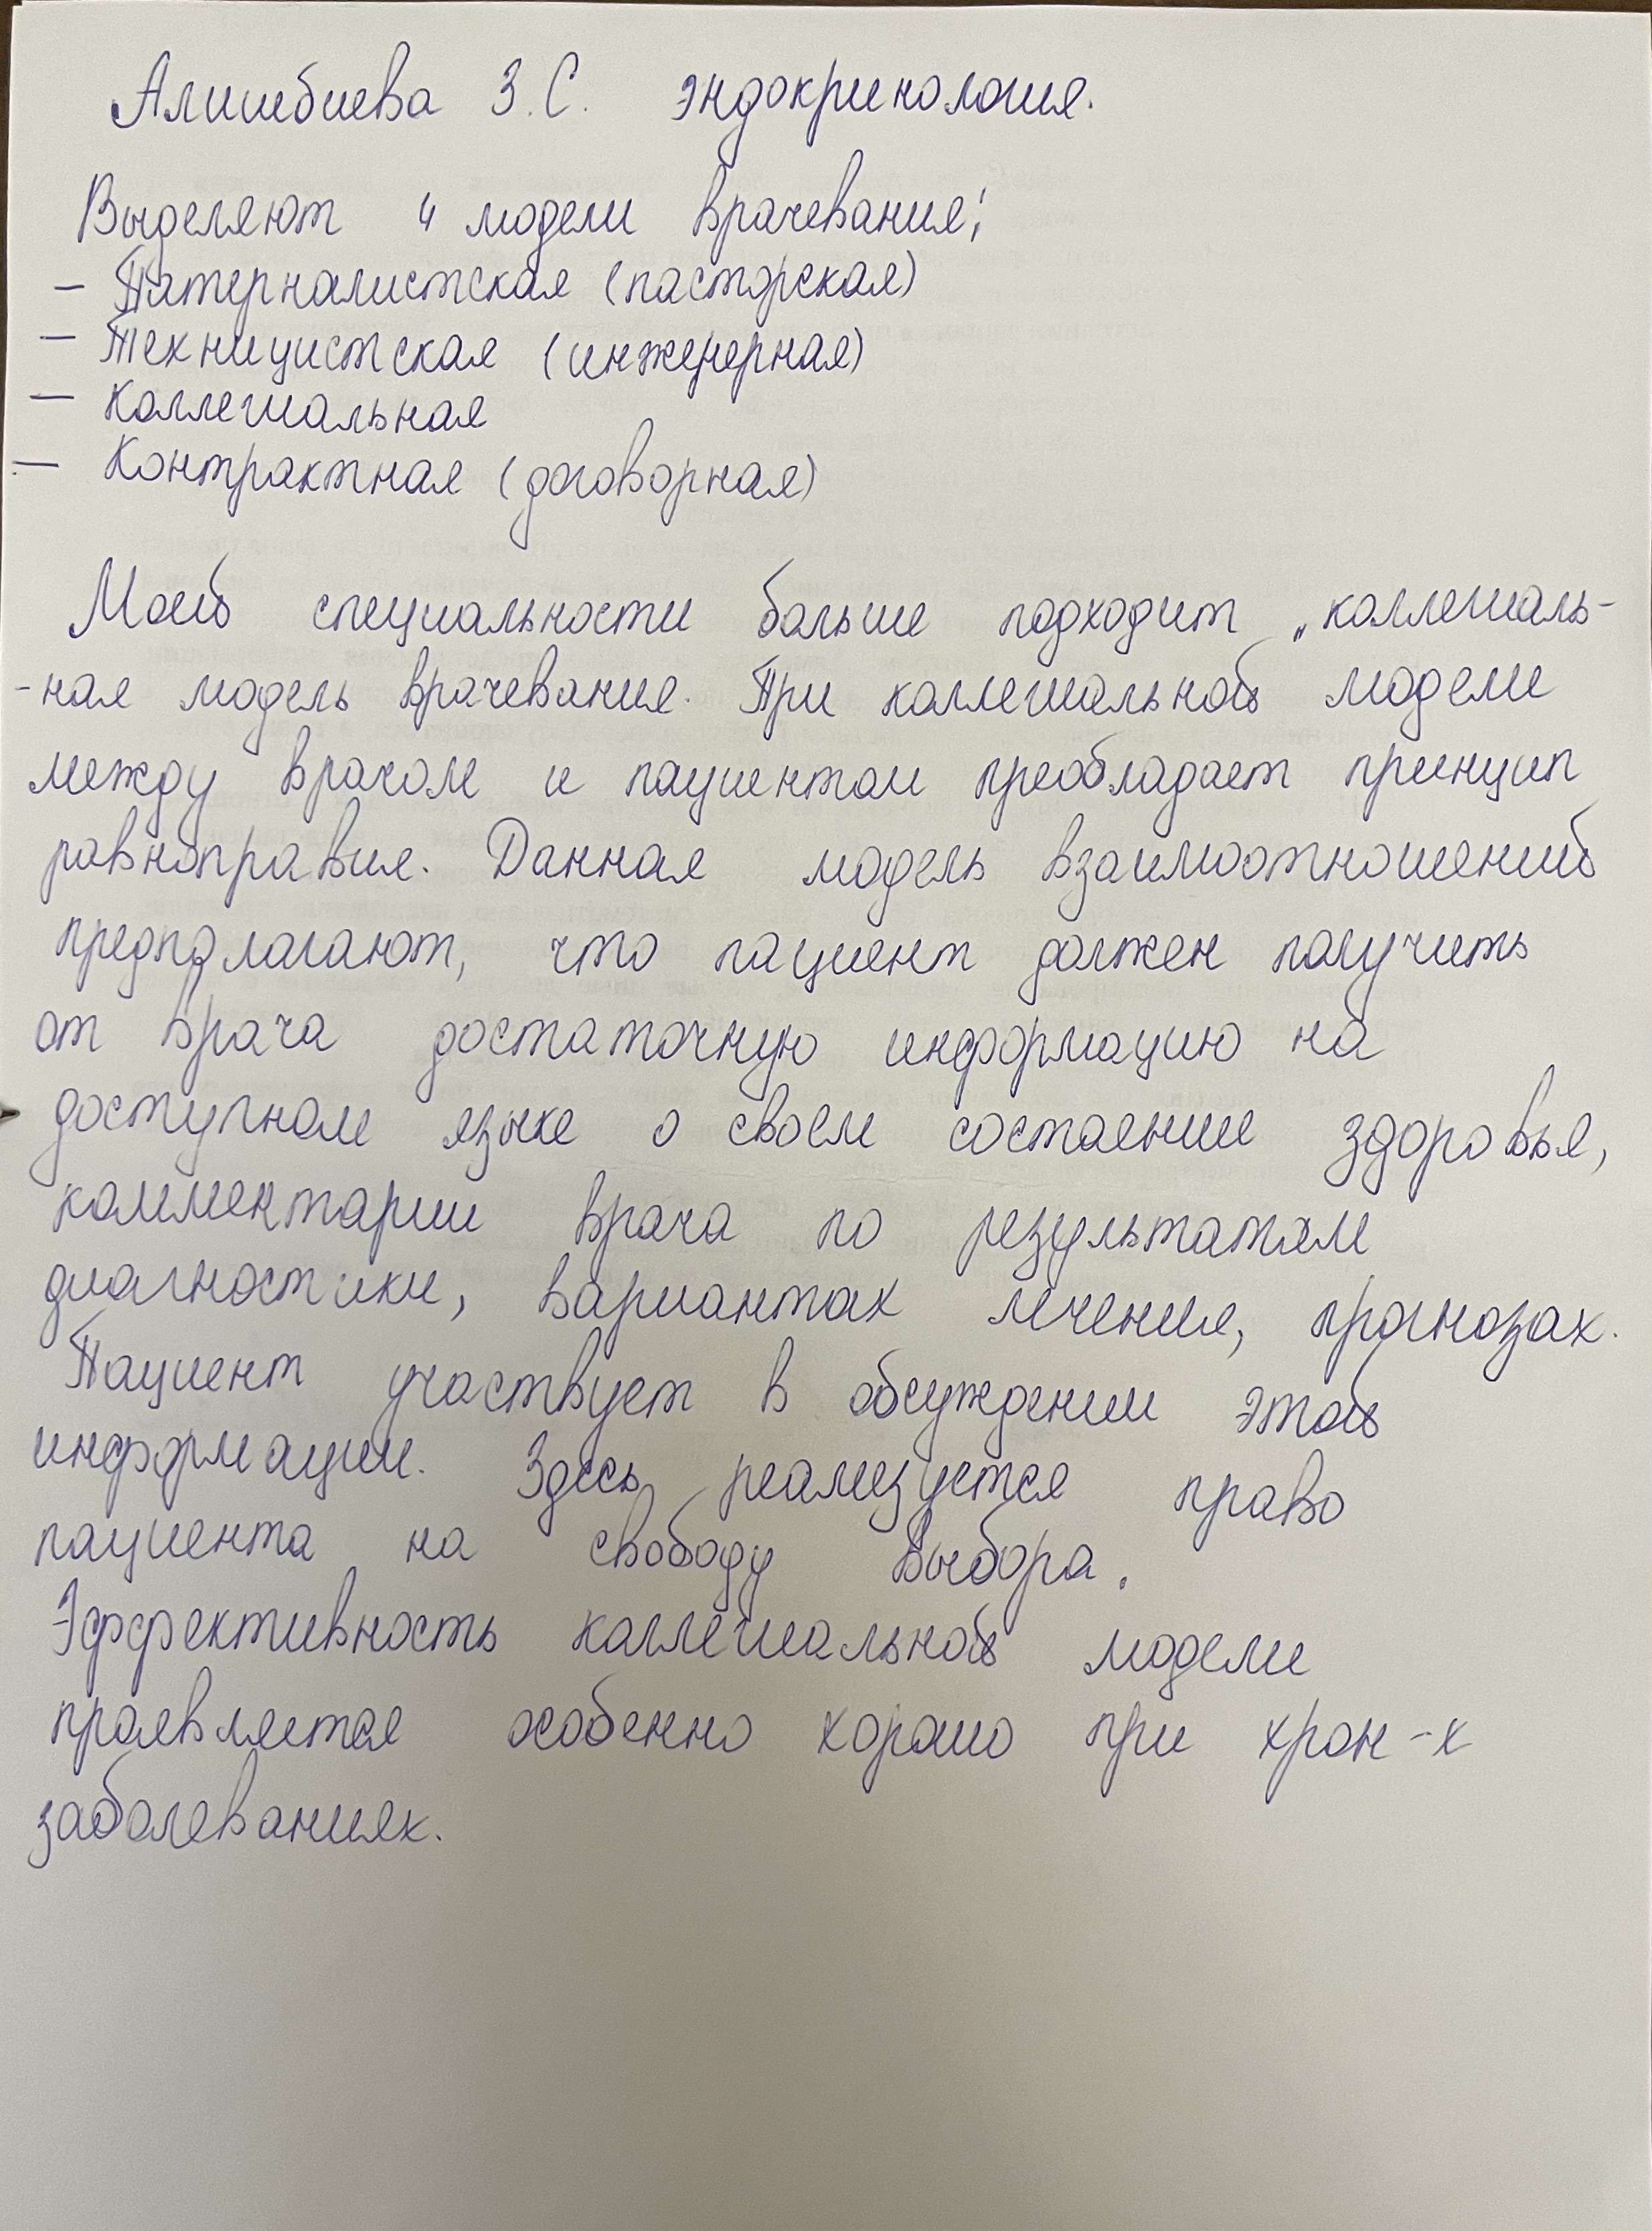 Алишбиева З.С. эндокринология.
Выделяют 4 модели врачевания:
– Патерналистская (пасторская)
– Техницистская (инженерная)
– Коллегиальная
– Контрактная (договорная)
Моей специальности больше подходит „коллегиаль-
-ная модель врачевания. При коллегиальной модели
между врачом и пациентом преобладает принцип
равноправия. Данная модель взаимоотношений
предполагают, что пациент должен получить
от врача достаточную информацию на
доступном языке о своем состоянии здоровья,
комментарии врача по результатам
диагностики, вариантах лечения, прогнозах.
Пациент участвует в обсуждении этой
информации. Здесь реализуется право
пациента на свободу выбора.
Эффективность коллегиальной модели
проявляется особенно хорошо при хрон-х
заболеваниях.